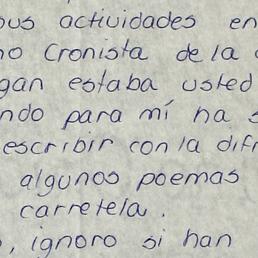 ous actividades en
no Cronista de la
gan estaba usted
ndo para mí ha s
escribir con la difi
algunos poemas
carretela.
, ignoro si han